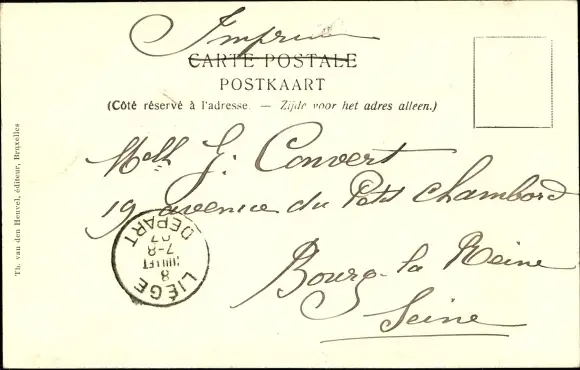 Imprimé
CARTE POSTALE
POSTKAART
(Côté réservé à l'adresse. — Zijde voor het adres alleen.)
Melle G. Convert
19 avenue du Petit Chambord
Bourg-la Reine
Seine
LIÉGE
8
JUILLET
7-8
07
DEPART
Th. van den Heuvel, éditeur, Bruxelles